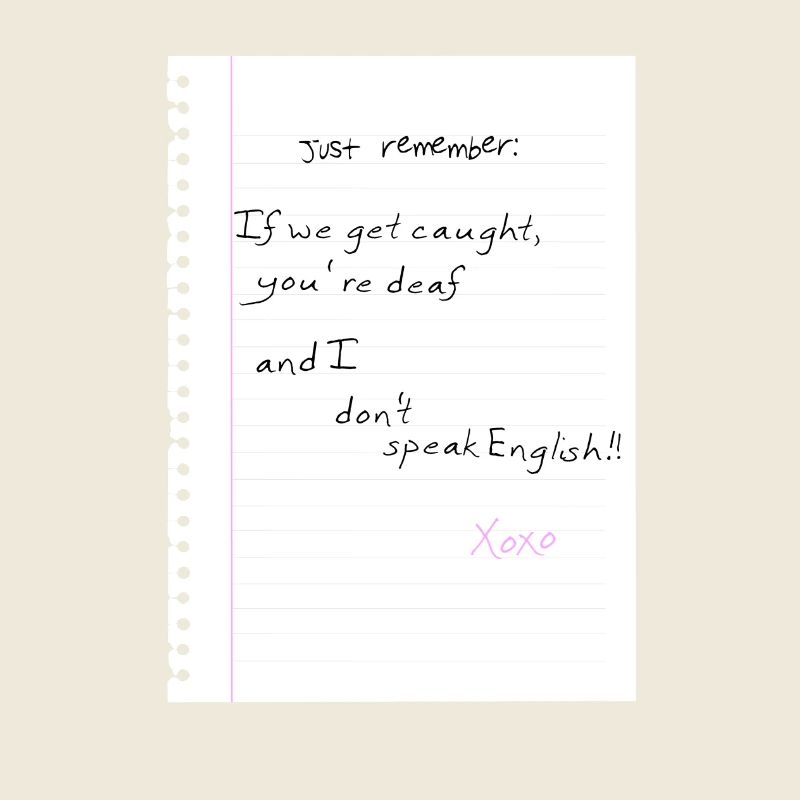 just remember:
If we get caught,
you're deaf
and I
don't
speak English!!
Xoxo